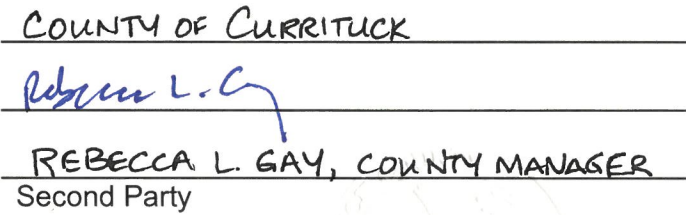 COUNTY OF CURRITUCK
Rebecca L. Gay
REBECCA L. GAY, COUNTY MANAGER
Second Party